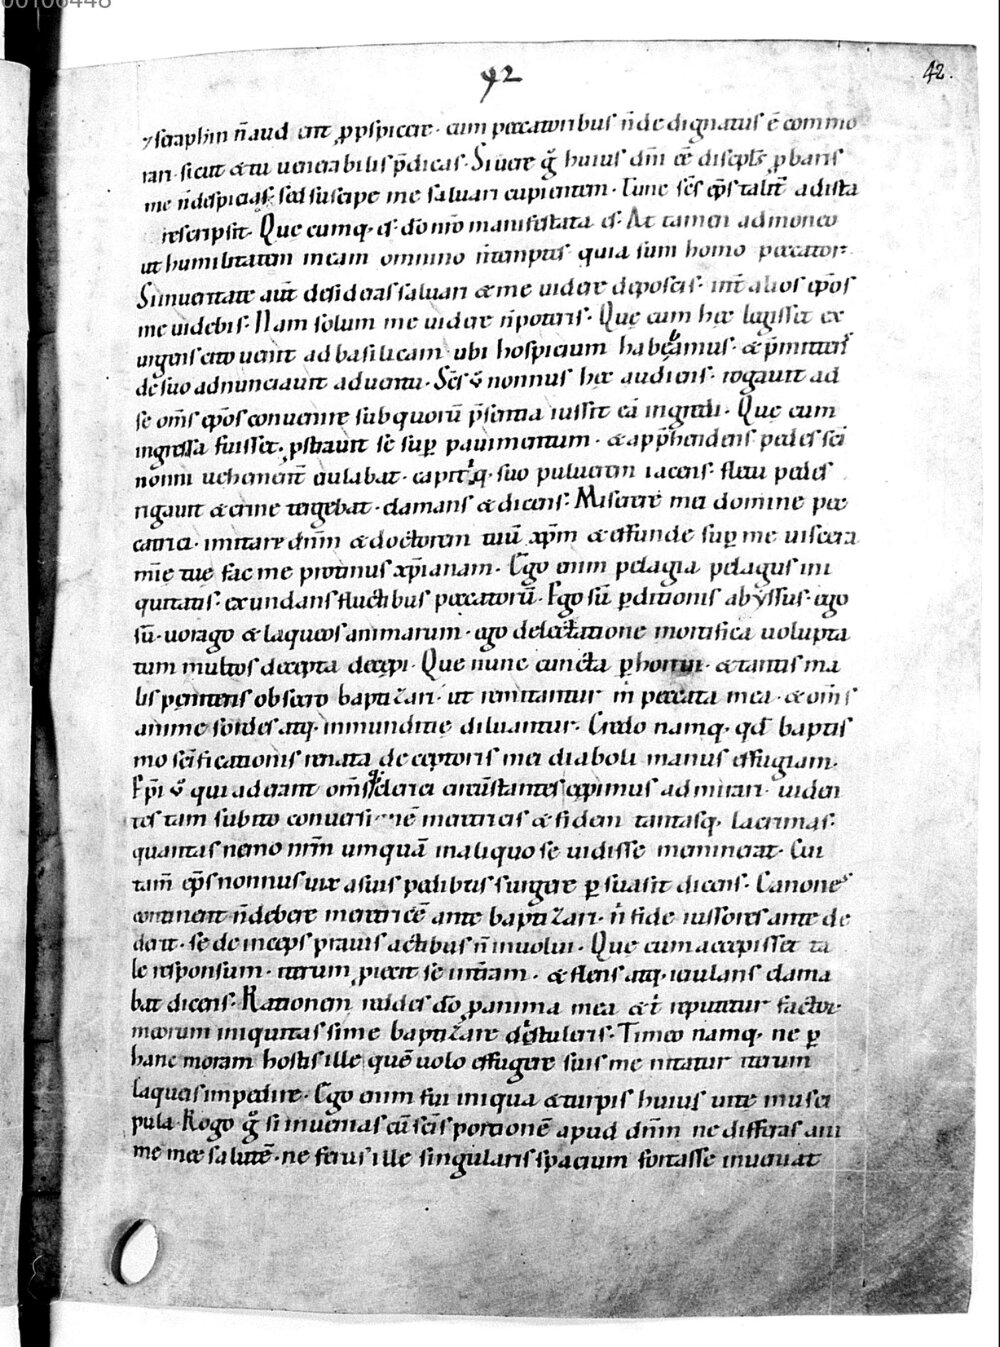 00106448
42
42.
⁊ seraphin ñ aud&ent p̱pspicere· cum peccatoribus ñ dedignatus ē commo
rari· sicut & tu uenerabilis p̄dicas· Si uere g̊ huius dn̄i ēe discipl̄s p̱baris
me ñ despicias· sed suscipe me saluari cupientem· Tunc sc̄s ep̄s talit̄ ad ista
rescripsit· Quę cumq· es· dō nr̄o manifestata es· At tamen admoneo
ut humilitatem meam omnino ñ temptes quia sum homo peccator·
Si in ueritate aut̄ desideras saluari & me uidere deposcis· int̄ alios ep̄os
me uidebis· Nam solum me uidere ñ poteris· Quę cum hęc legisset ex
urgens cito uenit ad basilicam ubi hospicium habebamus· & p̄mittens
de suo adnunciauit aduentu· Sc̄s v̊ nonnus hęc audiens· rogauit ad
se om̄s ep̄os conuenire sub quorū p̄sentia iussit eā ingredi· Quę cum
ingressa fuisset· p̱strauit se sup̱ pauimentum· & app̄hendens pedes sc̄i
nonni uehement̄ eiulabat· capitiq· suo puluerem iacens· fletu pedes
rigauit & crine tergebat· clamans & dicens· Miserere mei domine pec
catrici· imitare dn̄m & doctorem tuū xp̄m & effunde sup̱ me uiscera
mīe tuę fac me protinus xp̄ianam· Ego enim pelagia pelagus ini
quitatis· exundans fluctibus peccatorū· Ego sū p̱ditionis abyssus· ego
sū· uorago & laqueos animarum· ego delectatione mortifica uolupta
tum multos decepta decepi· Que nunc cuncta p̱horrui· & tantis ma
lis pęnitens obsecro baptizari· ut remittantur m̄ peccata mea· & om̄s
anime sordes atq· inmunditię diluantur· Credo namq· qđ baptis
mo sc̄ificationis renata deceptoris mei diaboli manus effugiam·
Ep̄i v̊ qui aderant om̄sq clerici circūstantes cepimus admirari· uiden
tes tam subito conuersionē meretricis & fidem tantasq· lacrimas·
quantas nemo nr̄m umquā in aliquo se uidisse meminerat· Cui
tam̄ ep̄s nonnus uix a suis pedibus surgere p̱suasit dicens· Canones
continent ñ debere meretricē ante baptizari· ñ fideiussores ante de
derit· se deinceps prauis actibus ñ inuolui· Que cum accepisset ta
le responsum· iterum p̱iecit se in terram· & flens atq· eiulans clama
bat dicens· Rationem reddes dō p̱ anima mea & t̄ reputetur factor
meorum iniquitas si me baptizare distuleris· Timeo namq· ne p̱
hanc moram hostis ille quē uolo effugere suis me nitatur iterum
laqueis impedire· Ego enim fui iniqua & turpis huius uite musci
pula· Rogo g̊ si inuenias cū sc̄is portionē apud dn̄m ne differas ani
me meę salutē· ne ferus ille singularis spacium fortasse inueniat